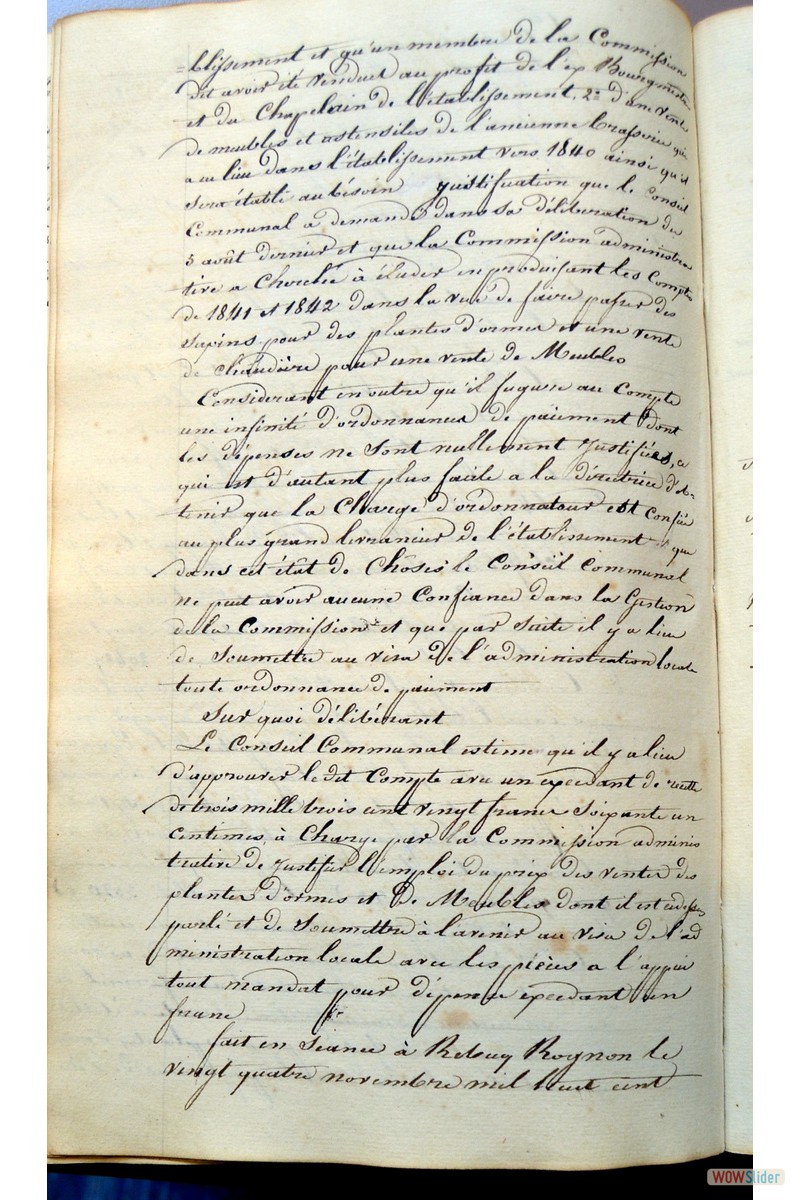 =blissement et qu'un membre de la Commission
dit avoir été vendues au profit de l'ex Bourgmestre
et du Chapelain de l'établissement, 2° d'une vente
de meubles et ustensiles de l'ancienne brasserie qui
a eu lieu dans l'établissement vers 1840 ainsi qu'il
sera établi au bésoin justification que le Conseil
Communal a demandé dans sa délibération du
5 août dernier et que la Commission administra
tive a cherchée à éluder en produisant les Comptes
de 1841 et 1842 dans la vue de faire passer des
sapins pour des plantes d'ormes et une vente
de chaudière pour une vente de Meubles
Considerant en outre qu'il fugure au Compte
une infinité d'ordonnances de paiement dont
les dépenses ne sont nullement justifiées, ce
qui est d'autant plus facile a la directrice d'ob-
tenir que la Charge d'ordonnateur est confiée
au plus grand livrancier de l'établissement et que
dans cet état de Chôses le Conseil Communal
ne peut avoir aucune Confiance dans la Gestion
de la Commission et que par suite il y a lieu
de Soumettre au visa de l'administration locale
toute ordonnance de paiment
Sur quoi délibérant
Le Conseil Communal estime qu'il y a lieu
d'approuver le dit Compte avec un excédant de recette
de trois mille trois cent vingt francs soixante un
Centimes, à Charge par la Commission adminis
trative de justifier l'emploi du prix des ventes des
plantes d'ormes et de Meubles dont il est cidessus
parlé et de Soumettre à l'avenir au visa de l'ad
ministration locale avec les pièces a l'appui
tout mandat pour dépense excedant un
franc
fait en séance à Rebecq Rognon le
vingt quatre novembre mil huit cent
WOWSlider